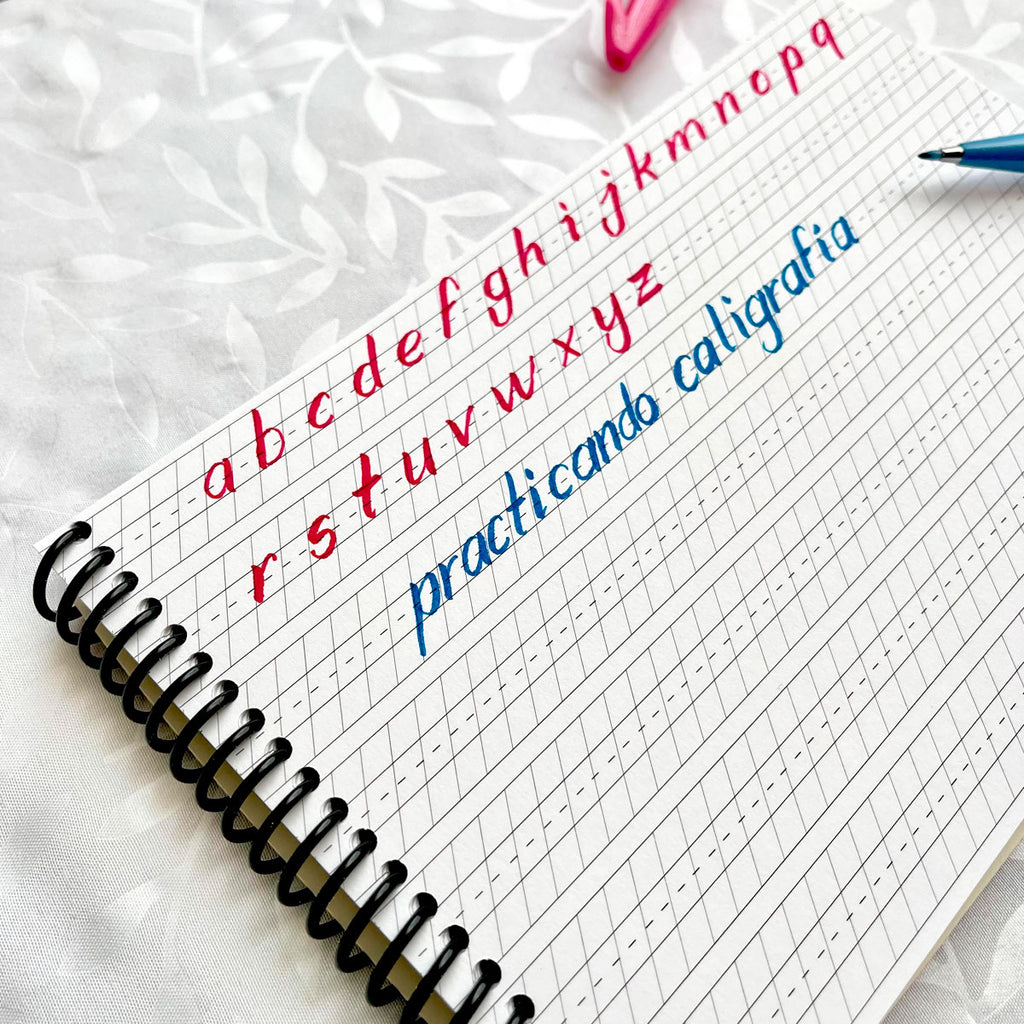 a b c d e f g h i j k m n o p q
r s t u v w x y z
practicando caligrafia